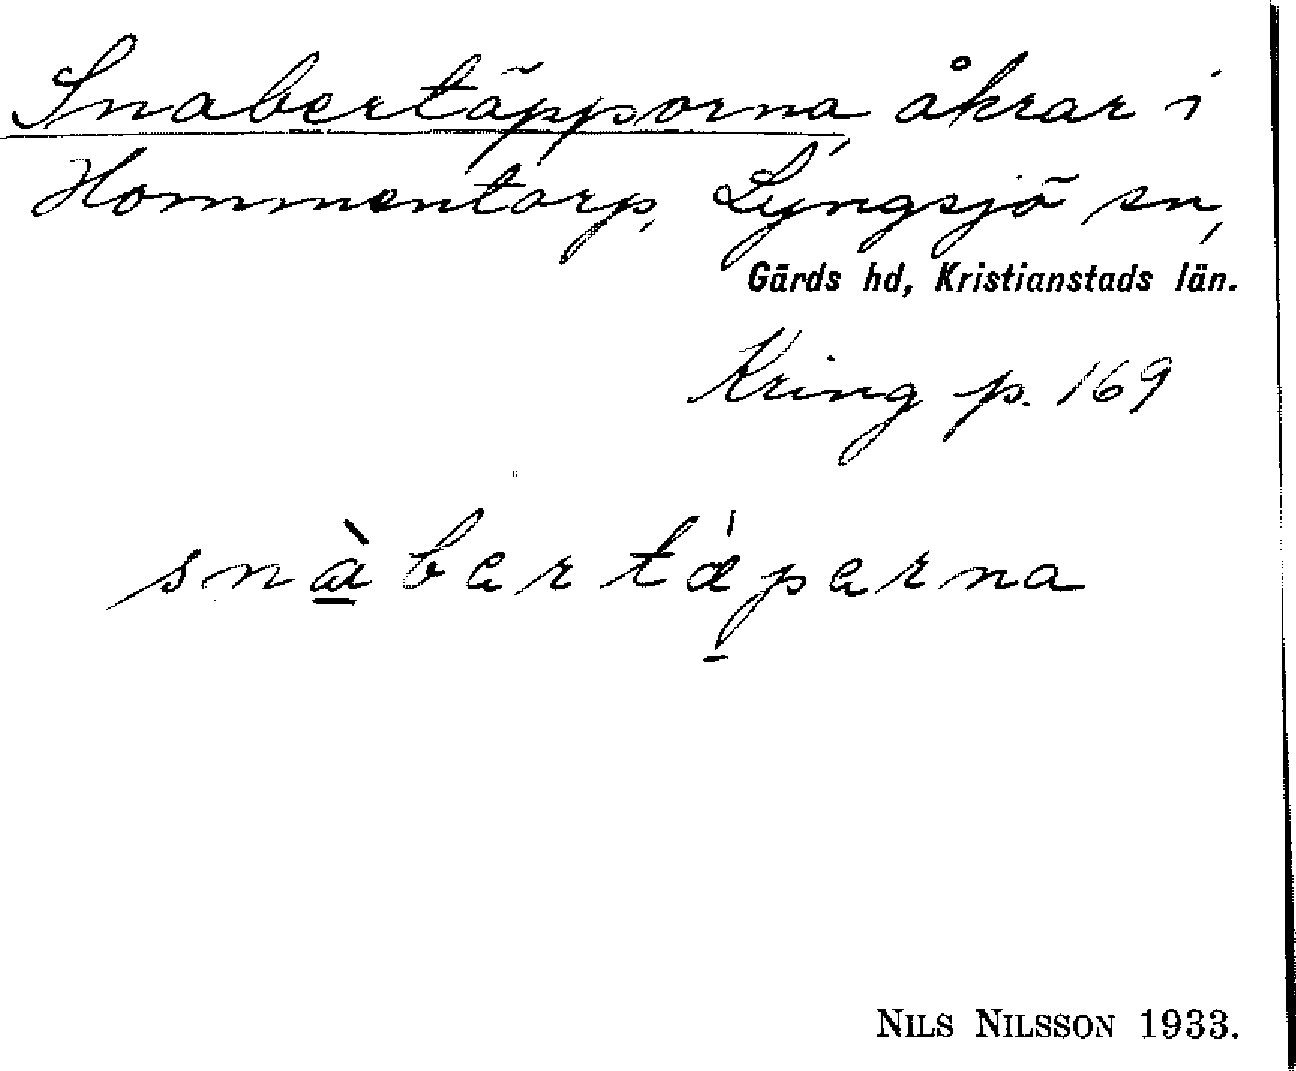 Snabertäpporna, åkrar i
Hommentorp, Lyngsjö sn,
Gärds hd, Kristianstads län.
Kring p. 169
snàbertǽperna
NILS NILSSON 1933.